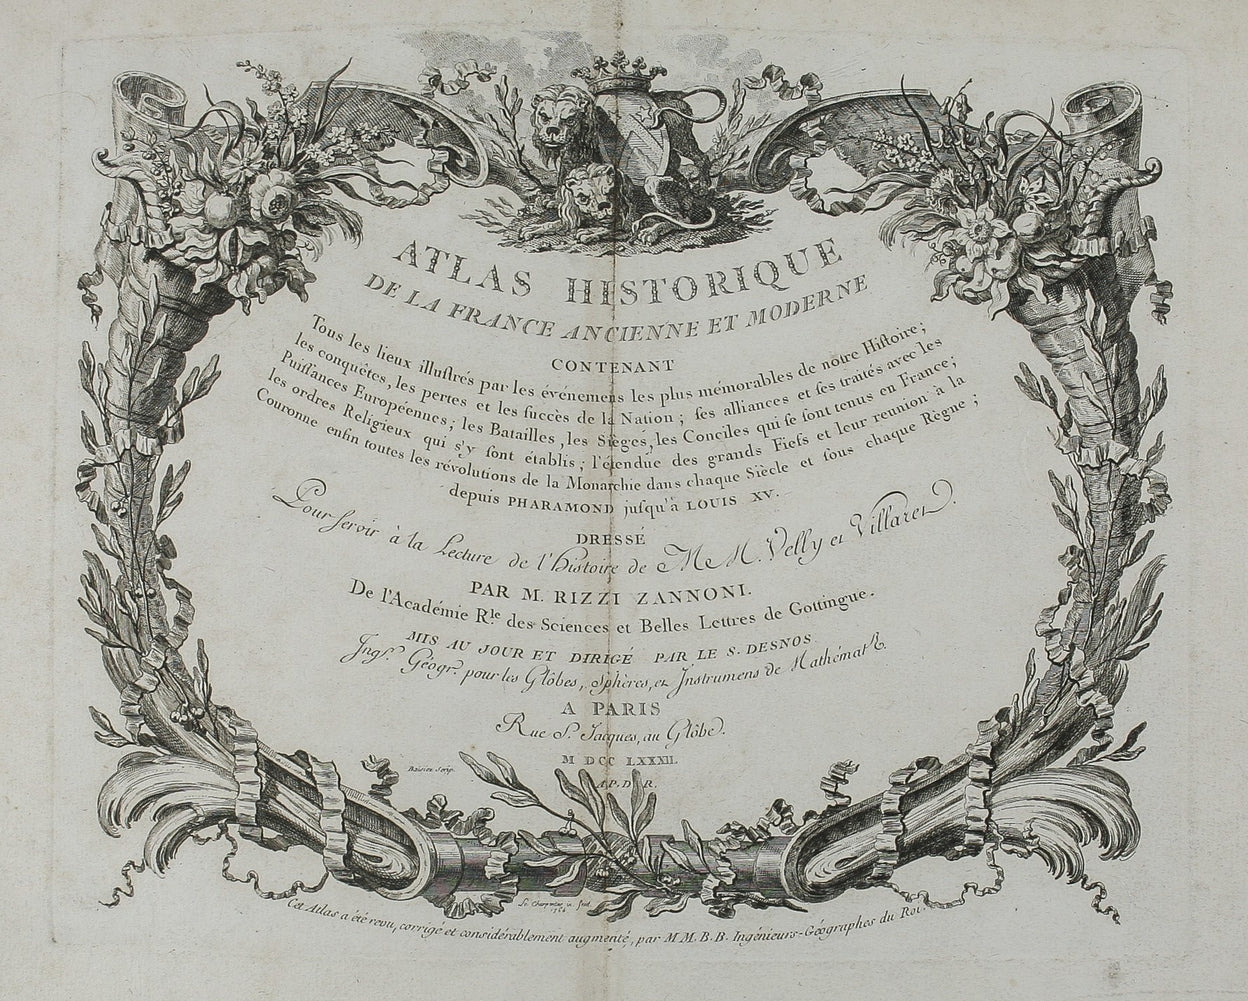 ATLAS HISTORIQUE
DE LA FRANCE ANCIENNE ET MODERNE
CONTENANT
Tous les lieux illustrés par les événemens les plus mémorables de notre Histoire;
les conquêtes, les pertes et les succès de la Nation; ses alliances et ses traités avec les
Puissances Européennes; les Batailles, les Siéges, les Conciles qui se sont tenus en France;
les ordres Religieux qui s'y sont établis; l'étendue des grands Fiefs et leur reunion à la
Couronne enfin toutes les révolutions de la Monarchie dans chaque Siècle et sous chaque Règne;
depuis PHARAMOND jusqu'à LOUIS XV.
DRESSÉ
Pour servir à la Lecture de l'histoire de M M. Velly et Villaret.
PAR M. RIZZI ZANNONI.
De l'Académie Rle des Sciences et Belles Lettres de Gottingue.
MIS AU JOUR ET DIRIGÉ PAR LE S. DESNOS
Ingr. Géogr. pour les Glôbes, Sphères, et Instrumens de Mathémat R.
A PARIS
Rue St. Jacques, au Glôbe.
M DCC LXXXII.
A.P.D.R.
Cet Atlas a été revu, corrigé et considérablement augmenté, par M M. B. B. Ingénieurs-Géographes du Roi.